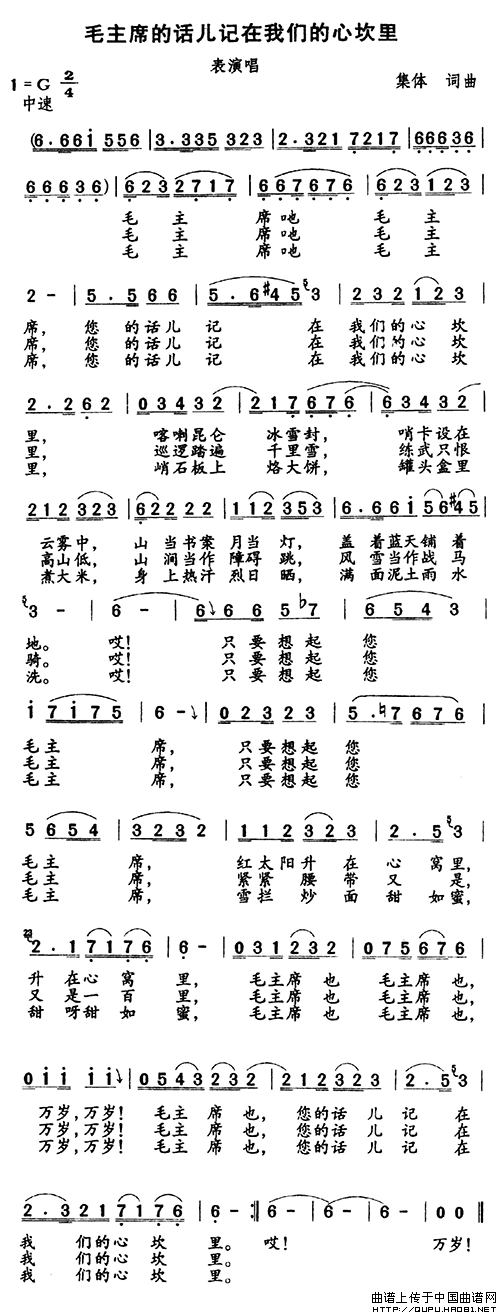 毛主席的话儿记在我们的心坎里
表演唱
1=G 2/4
中速
集体 词曲
(6·66i 556 | 3·335 323 | 2·321 7217 | 66636 |
66636) | 6232717 | 667676 | 623123 |
毛 主 席吔 毛 主
毛 主 席吔 毛 主
毛 主 席吔 毛 主
2 - | 5·566 | 5·6#45 3 | 232123 |
席，您 的话儿 记 在 我们的心 坎
席，您 的话儿 记 在 我们的心 坎
席，您 的话儿 记 在 我们的心 坎
2·262 | 03432 | 217676 | 63432 |
里， 喀喇昆仑 冰雪封， 哨卡设在
里， 巡逻踏遍 千里雪， 练武只恨
里， 峭石板上 烙大饼， 罐头盒里
212323 | 22322 | 112353 | 6·66i 56#45 |
云雾中， 山 当书案 月当 灯， 盖 着蓝天铺 着
高山低， 山 涧当作 障碍 跳， 风 雪当作战 马
煮大米， 身 上热汗 烈日 晒， 满 面泥土雨 水
3 - | 6 - | 6 66 5♭7 | 654 3 |
地。 哎！ 只要想起 您
骑。 哎！ 只要想起 您
洗。 哎！ 只要想起 您
i7i75 | 6 - | 02323 | 5·♮7676 |
毛主 席， 只要想起 您
毛主 席， 只要想起 您
毛主 席， 只要想起 您
5 654 | 3232 | 112323 | 2·5 3 |
毛主 席， 红太阳升 在 心 窝里，
毛主 席， 紧紧 腰 带 又 是，
毛主 席， 雪拦 炒 面 甜 如蜜，
2·17176 | 6 - | 031232 | 075676 |
升 在心 窝 里， 毛主席 也 毛主席 也，
又 是一 百 里， 毛主席 也 毛主席 也，
甜 呀甜 如 蜜， 毛主席 也 毛主席 也，
0ii ii | 0543232 | 212323 | 2·5 3 |
万岁，万岁！ 毛主 席 也， 您的话 儿 记 在
万岁，万岁！ 毛主 席 也， 您的话 儿 记 在
万岁，万岁！ 毛主 席 也， 您的话 儿 记 在
2·3217176 | 6 - :‖ 6 - | 6 - | 00 ‖
我 们的心 坎 里。 哎！ 万岁！
我 们的心 坎 里。
我 们的心 坎 里。
曲谱上传于中国曲谱网
http://QUPU.HAO81.NET